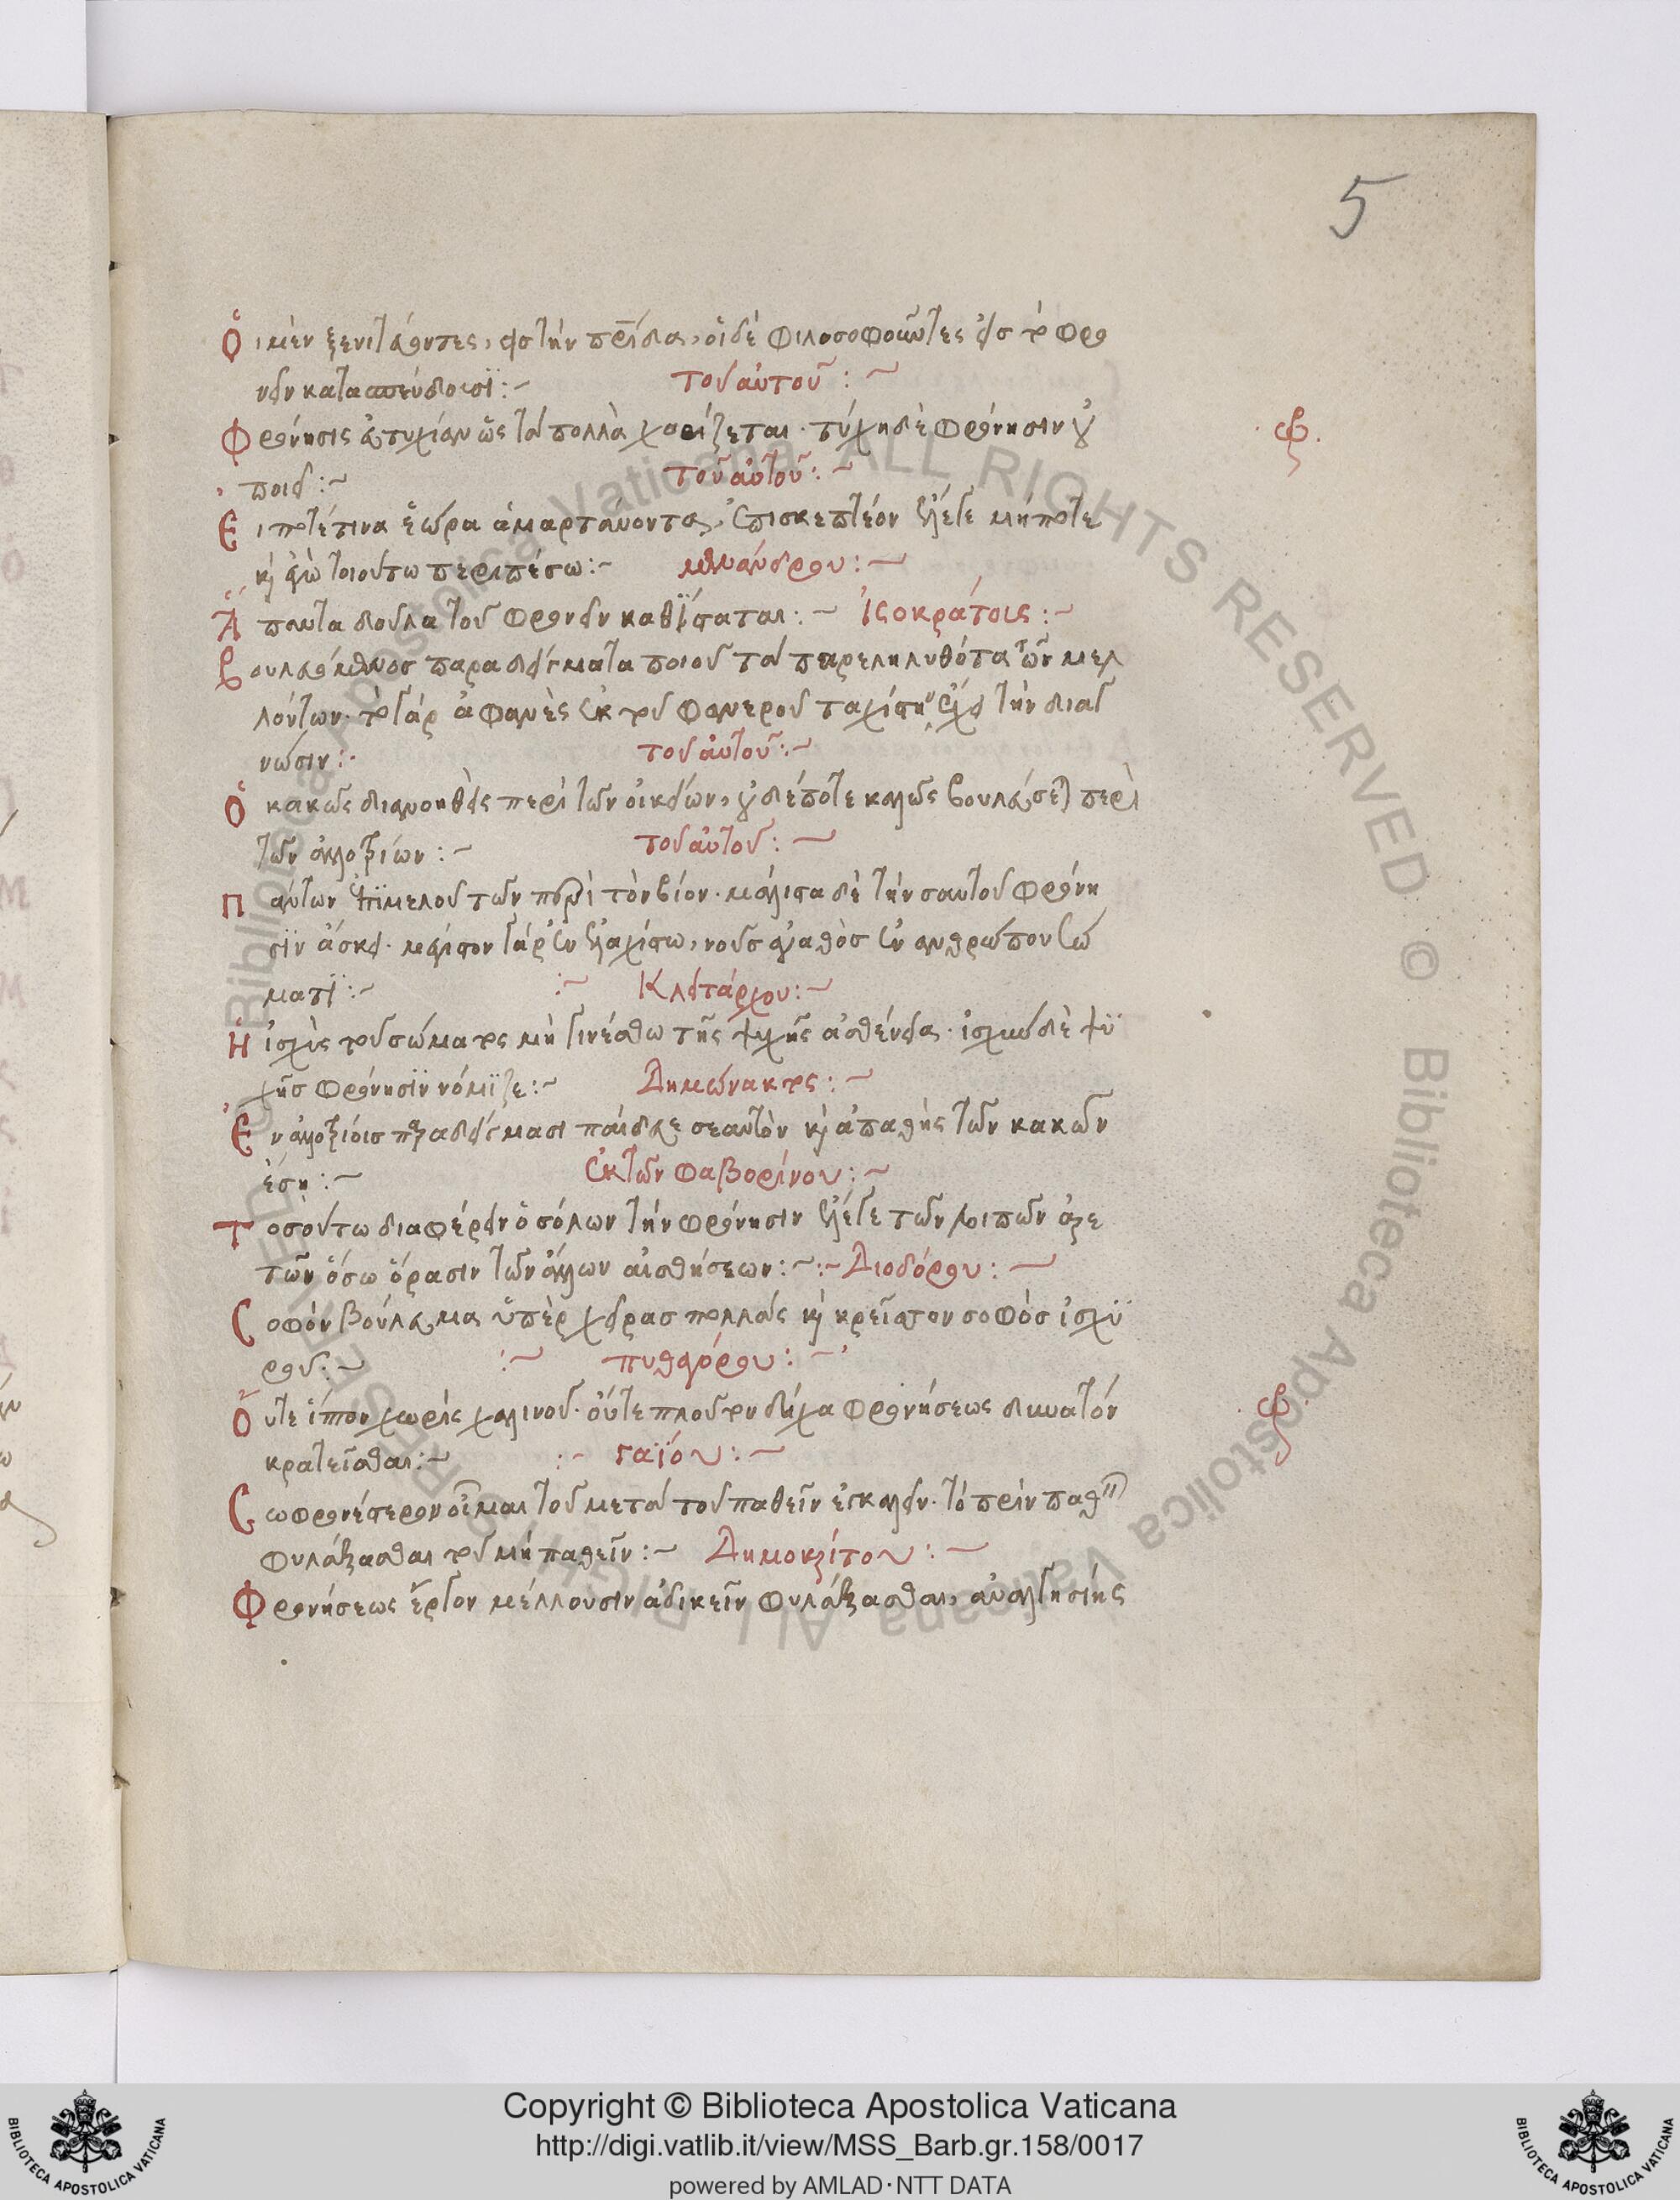 5
Ὁι μὲν ξενιτεύοντες, εἰς τὴν πρίδα, οἱ δὲ φιλοσοφοῦντες εἰς τὸ φρο
νεῖν κατασπεύδουσϊ :~ τοῦ αὐτοῦ :~
Φρόνησις εὐτυχίαν ὡς τὰ πολλὰ χαρίζεται · τύχη δὲ φρόνησιν οὐ
ποιεῖ :~ τοῦ αὐτοῦ :~
Εἰ ποτέ τινα ἑώρα ἁμαρτάνοντα, ἐπισκεπτέον ἔλεγε μήποτε
κὶ ἐγὼ τοιούτω περιπέσω :~ μενάνδρου :~
Ἅπαντα δοῦλα τοῦ φρονεῖν καθΐσταται :~ ἰσοκράτους :~
Βουλευόμενος παραδείγματα ποιοῦ τὰ παρεληλυθότα τῶν μελ
λόντων · τὸ γὰρ ἀφανὲς ἐκ τοῦ φανεροῦ ταχίστην ἔχει τὴν διαγ
νωσιν :· τοῦ αὐτοῦ :~
Ὁ κακῶς διανοηθεὶς περὶ τῶν οἰκείων, οὐδέποτε καλῶς βουλεύσεται περὶ
τῶν ἀλλοτρίων :~ τοῦ αὐτοῦ :~
Πάντων ἐπϊμελοῦ τῶν περὶ τὸν βίον · μάλιστα δὲ τὴν σαυτοῦ φρόνη
σϊν ἄσκει · μέγιστον γὰρ ἐν ἐλαχίστω, νοῦς ἀγαθὸς ἐν ἀνθρώπου σώ
ματϊ :~ :~ Κλειτάρχου :~
Ἡ ἰσχὺς τοῦ σώματος μὴ γινέσθω τῆς ψυχῆς ἀσθένεια · ἰσχὺν δὲ ψϋ
χῆς φρόνησϊν νόμϊζε :~ Δημώνακτος :~
Ἐν ἀλλοτρίοις παραδείγμασι παίδευε σεαυτὸν κὶ ἀπαθὴς τῶν κακῶν
ἔση :~ ἐκ τῶν φαβορίνου :~
Τοσούτω διαφέρειν ὁ σόλων τὴν φρόνησιν ἔλεγε τῶν λοιπῶν ἀρε
τῶν ὅσω ὅρασιν τῶν ἄλλων αἰσθήσεων :~ :~ Διοδόρου :~
Σοφὸν βούλευμα ὑπὲρ χεῖρας πολλὰς κὶ κρεῖσσον σοφὸς ἰσχϋ
ροῦ :~ :~ πυθαγόρου :~
Οὔτε ἵπον χωρὶς χαλινοῦ · οὔτε πλοῦτον δίχα φρονήσεως δυνατόν
κρατεῖσθαι :~ :~ γαϊου :~
Σωφρονέστερον οἶμαι τοῦ μετὰ τοῦ παθεῖν ἐγκαλεῖν · τὸ πρὶν παθεῖν
φυλάξασθαι τοῦ μὴ παθεῖν :~ Δημοκρίτου :~
Φρονήσεως ἔργον μέλλουσιν ἀδικεῖν φυλάξασθαι, ἀναλγησίης
Copyright © Biblioteca Apostolica Vaticana
http://digi.vatlib.it/view/MSS_Barb.gr.158/0017
powered by AMLAD·NTT DATA